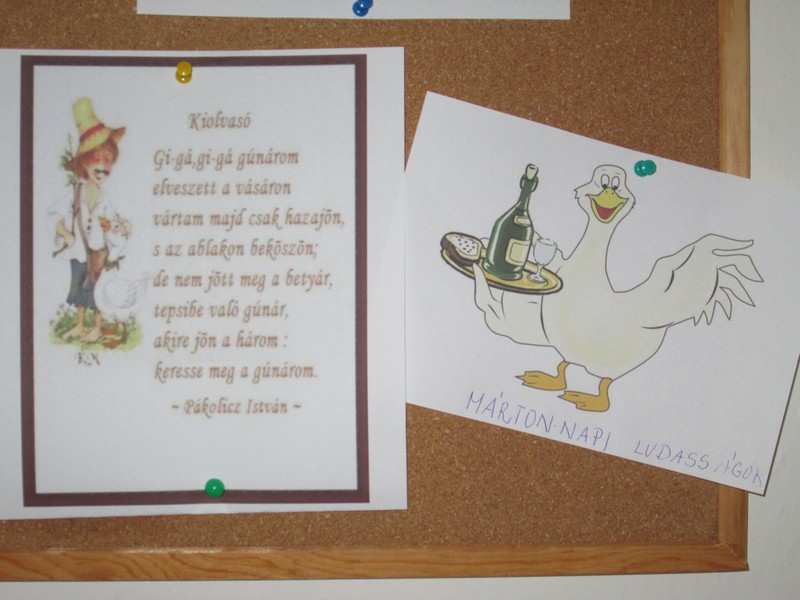 Kiolvasó
Gi-gá,gi-gá gúnárom
elveszett a vásáron
vártam majd csak hazajön,
s az ablakon beköszön;
de nem jött meg a betyár,
tepsibe való gúnár,
akire jön a három :
keresse meg a gúnárom.
~ Pákolicz István ~
MÁRTON-NAPI LUDASSÁGOK